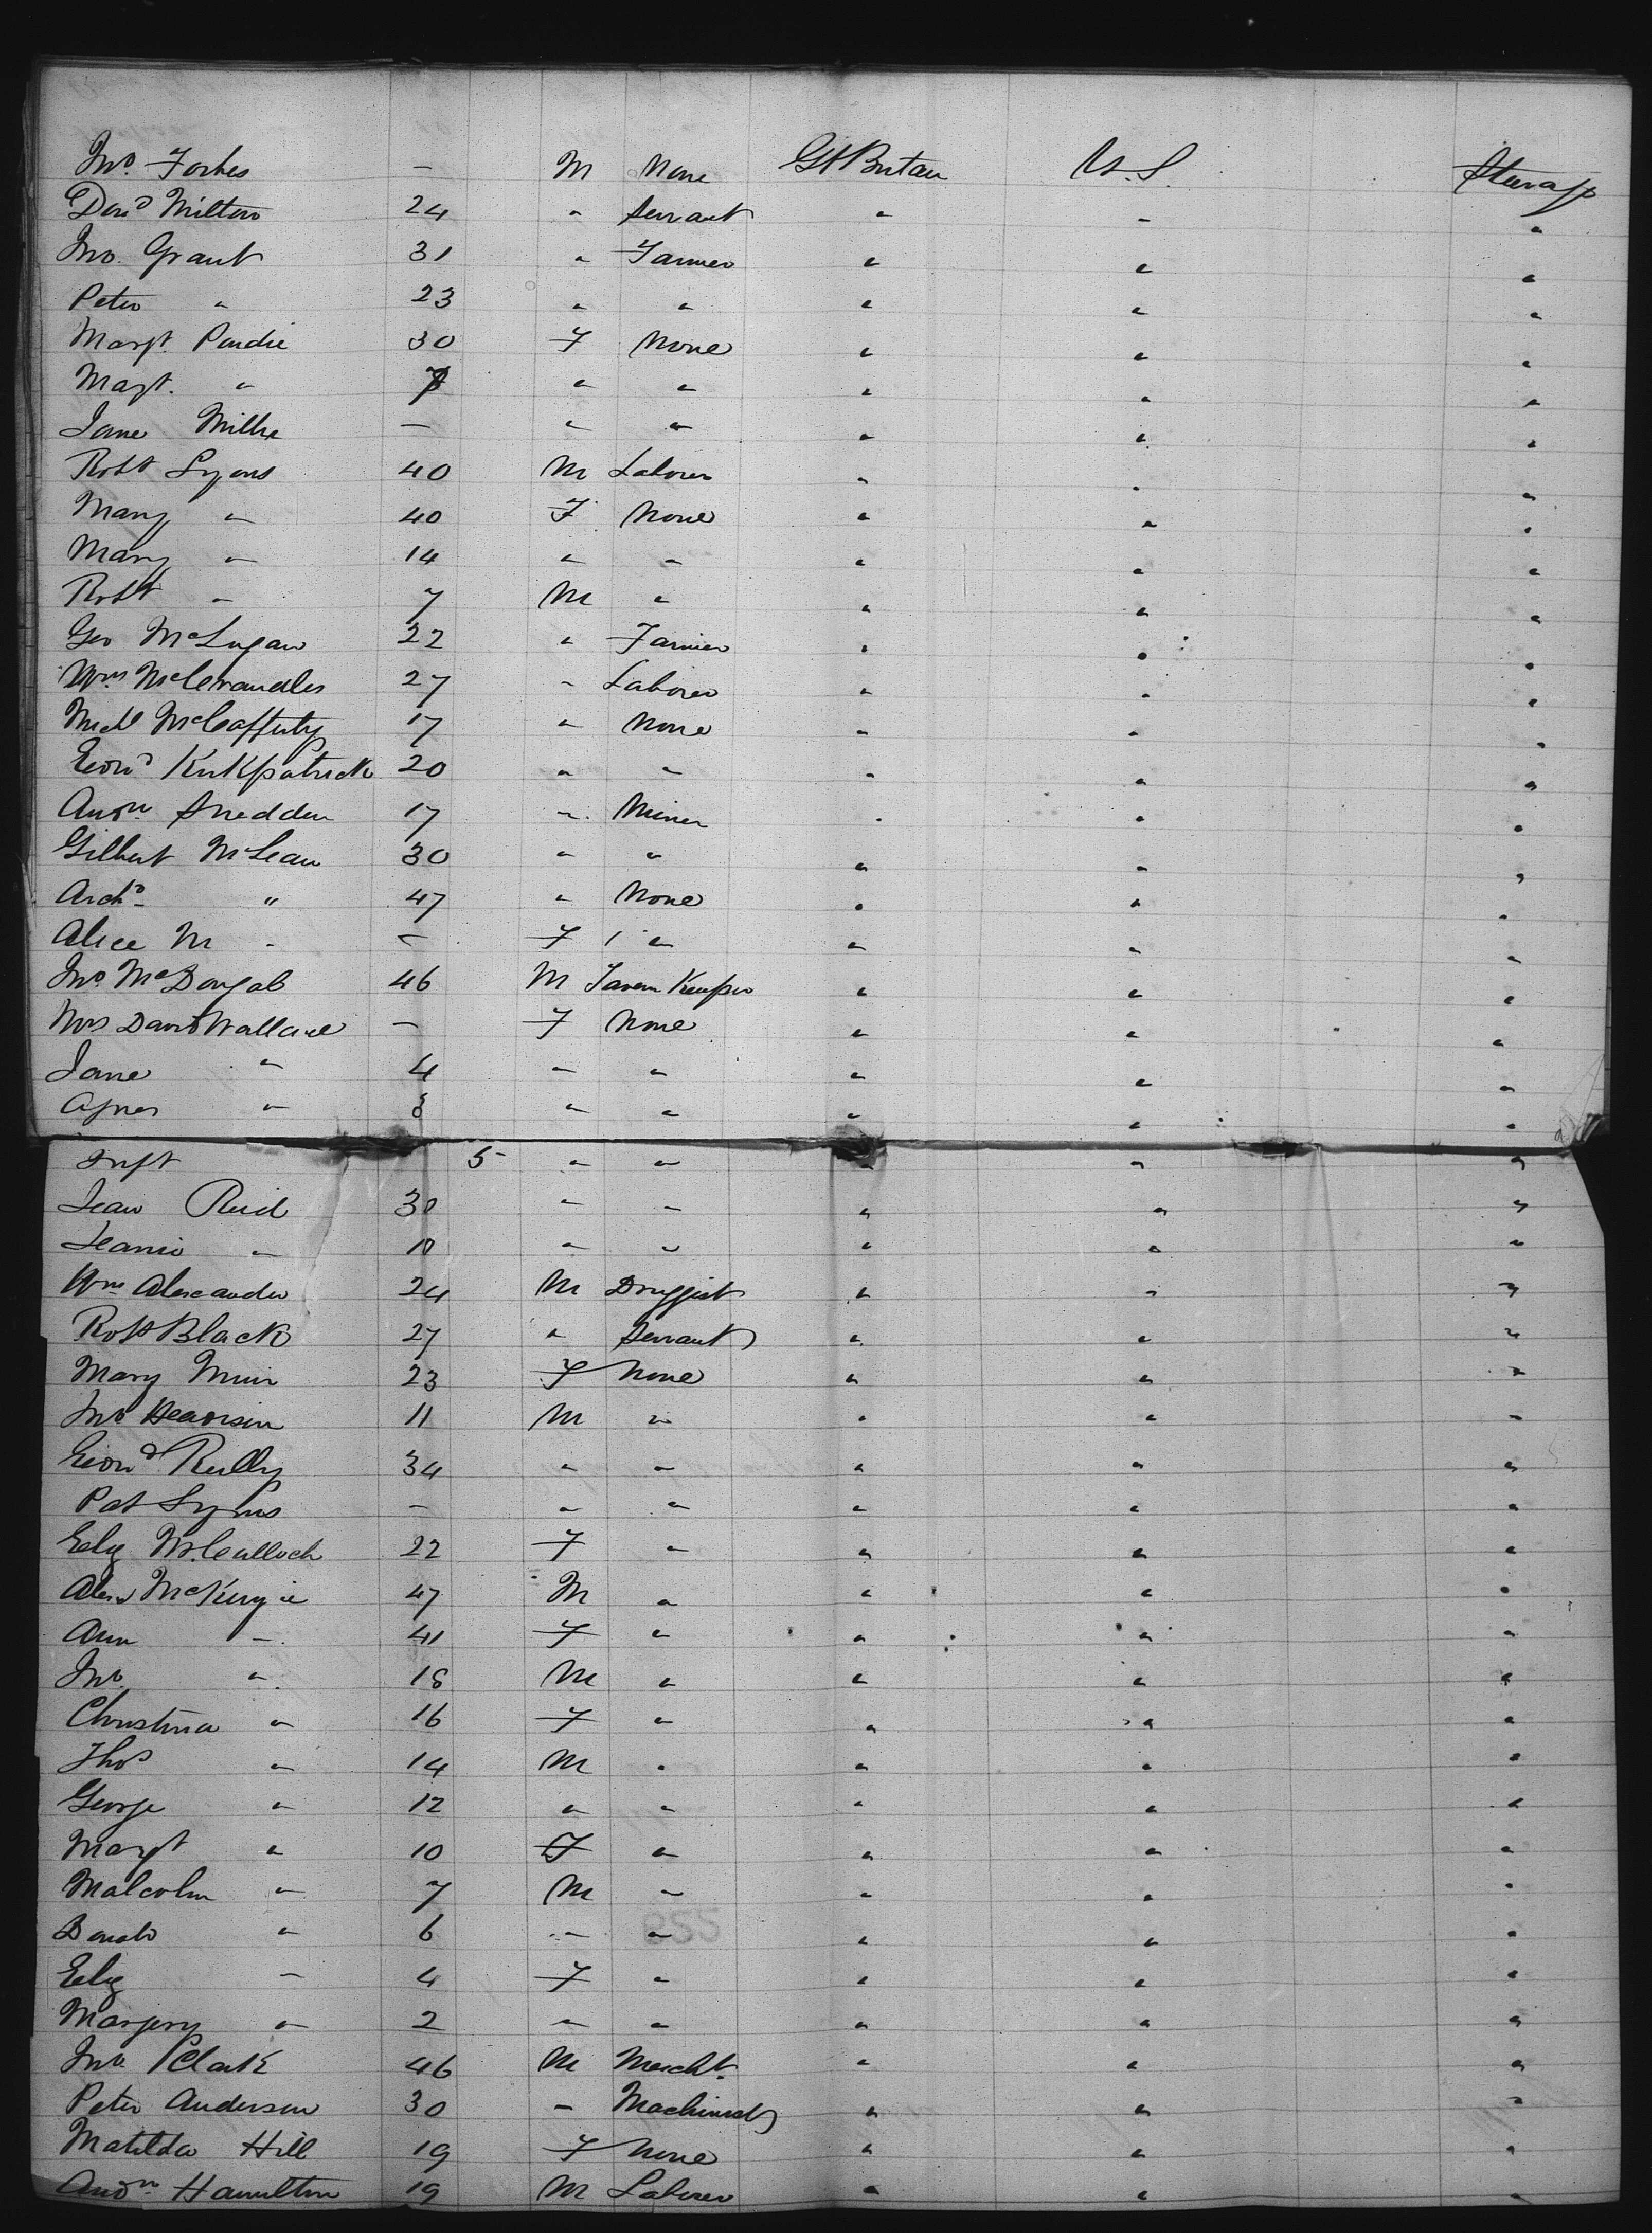 Jno. Forbes — M None Gt Britain U.S. Steerage
David Milton 24 " Servant " " "
Jno. Grant 31 " Farmer " " "
Peter " 23 " " " " "
Margt. Purdie 30 F None " " "
Magt. " 7 " " " " "
Jane Miller — " " " " "
Robt Lyons 40 M Laborer " " "
Mary " 40 F None " " "
Mary " 14 " " " " "
Robt " 7 M " " " "
Geo McLugan 22 " Farmer " " "
Wm McCrandles 27 " Laborer " " "
Michl McCafferty 17 " None " " "
Edwd Kirkpatrick 20 " " " " "
Andw Snedden 17 " Miner " " "
Gilbert McLean 30 " " " " "
Archd " 47 " None " " "
Alice M " — F " " " "
Jno McDougal 46 M Tavern Keeper " " "
Mrs David Wallace — F None " " "
Jane " 4 " " " " "
Agnes " 3 " " " " "
Inft 5 " " " " "
Jean Reid 30 " " " " "
Jeanie " 10 " " " " "
Wm Alexander 24 M Druggist " " "
Robt Black 27 " Servant " " "
Mary Muir 23 F None " " "
Jno 11 M " " " "
Edwd Reilly 34 " " " " "
Pat Lyons — " " " " "
Eliz McCulloch 22 F " " " "
Alexr McKenzie 47 M " " " "
Ann " 41 F " " " "
Jno. " 18 M " " " "
Christina " 16 F " " " "
Thos " 14 M " " " "
George " 12 " " " " "
Margt " 10 F " " " "
Malcolm " 7 M " " " "
Donald " 6 " " " " "
Eliz " 4 F " " " "
Margery " 2 " " " " "
Jno. Clark 46 M Mercht. " " "
Peter Anderson 30 " Machinist " " "
Matilda Hill 19 F None " " "
Andw Hamilton 19 M Laborer " " "